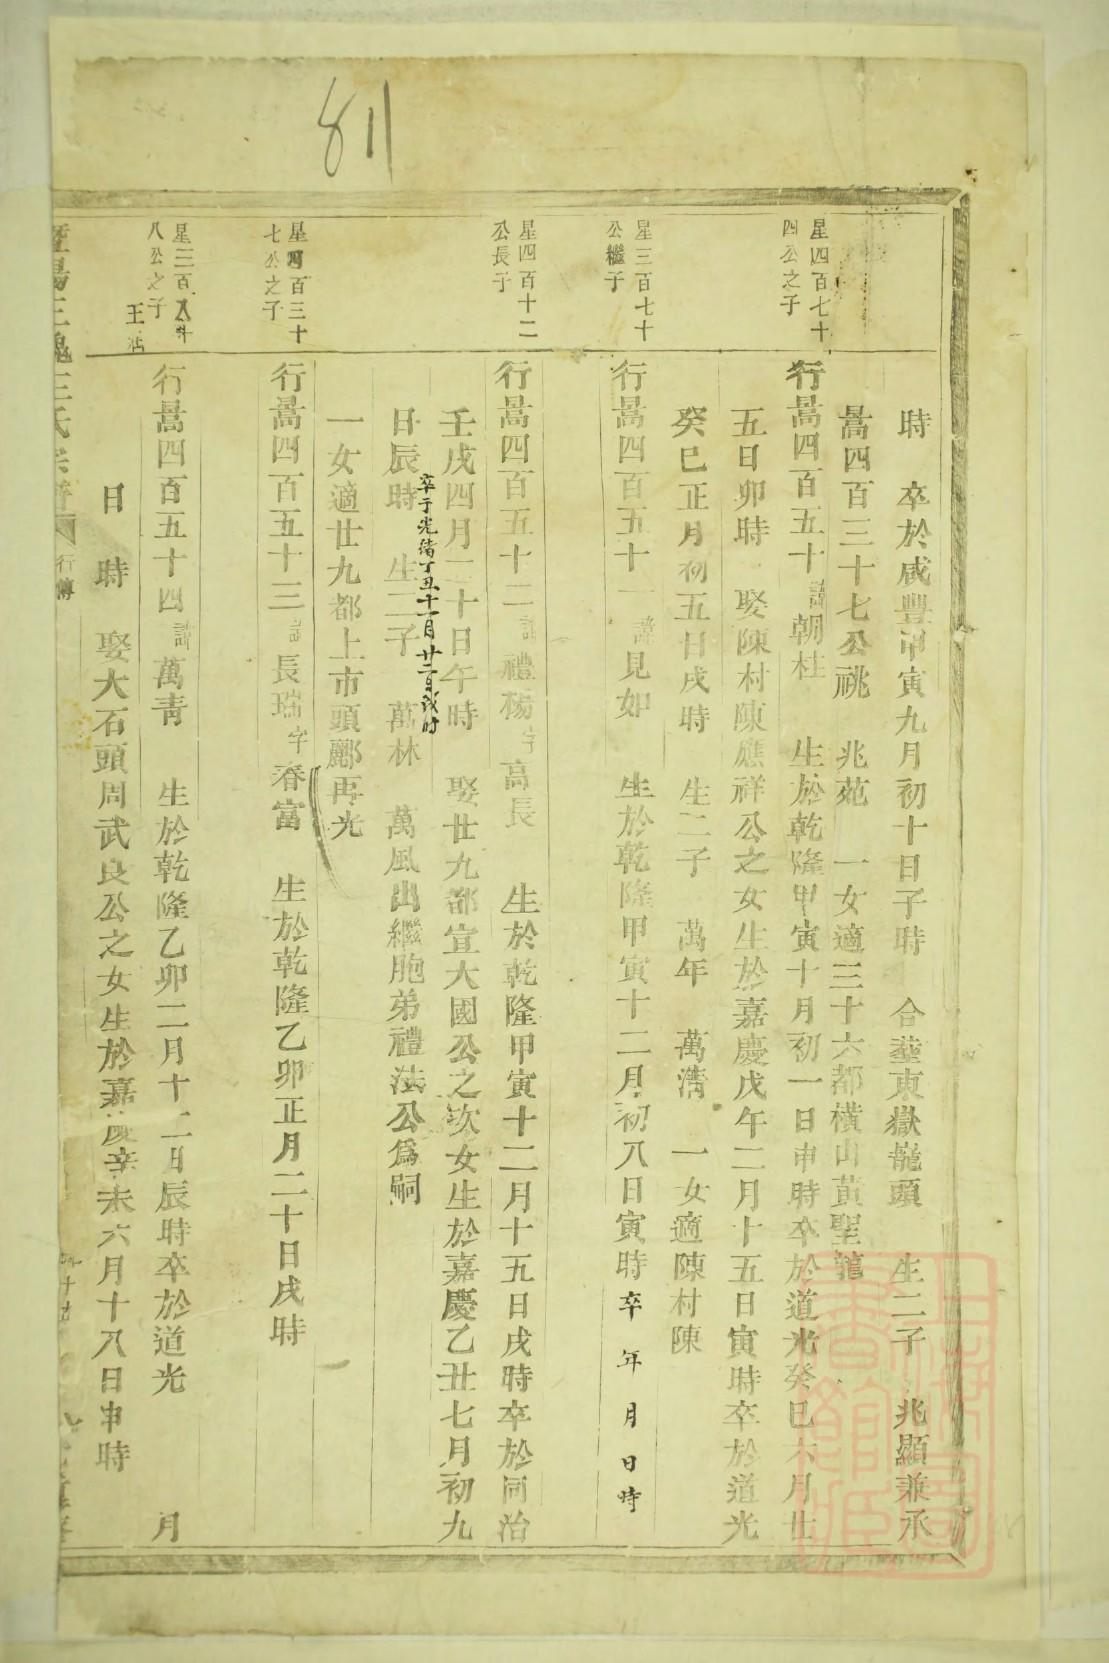 811
時　卒於咸豐甲寅九月初十日子時　合塟東嶽龍頭　生二子　兆顯兼承
暠四百三十七公祧　兆苑　一女適三十六都橫山黃聖
星四百七十
四公之子
行暠四百五十諱朝桂　生於乾隆甲寅十月初一日申時卒於道光癸巳六月廿
五日卯時　娶陳村陳應祥公之女生於嘉慶戊午二月十五日寅時卒於道光
癸巳正月初五日戌時　生二子　萬年　萬清　一女適陳村陳
星三百七十
公繼子
行暠四百五十一諱見如　生於乾隆甲寅十二月初八日寅時卒　年　月　日　時
星四百十二
公長子
行暠四百五十二諱禮楊字高長　生於乾隆甲寅十二月十五日戌時卒於同治
壬戌四月二十日午時　娶廿九都宣大國公之次女生於嘉慶乙丑七月初九
卒于光緒丁丑十一月廿二日戌时
日辰時　生二子　萬林　萬風出繼胞弟禮法公爲嗣
一女適廿九都上市頭酈再光
星四百三十
七公之子
行暠四百五十三諱長瑞字春富　生於乾隆乙卯正月二十日戌時
星三百八十
八公之子
行暠四百五十四諱萬靑　生於乾隆乙卯二月十二日辰時卒於道光　月
日　時　娶大石頭周武良公之女生於嘉慶辛未六月十八日申時
暨陽王氏宗譜
行傳